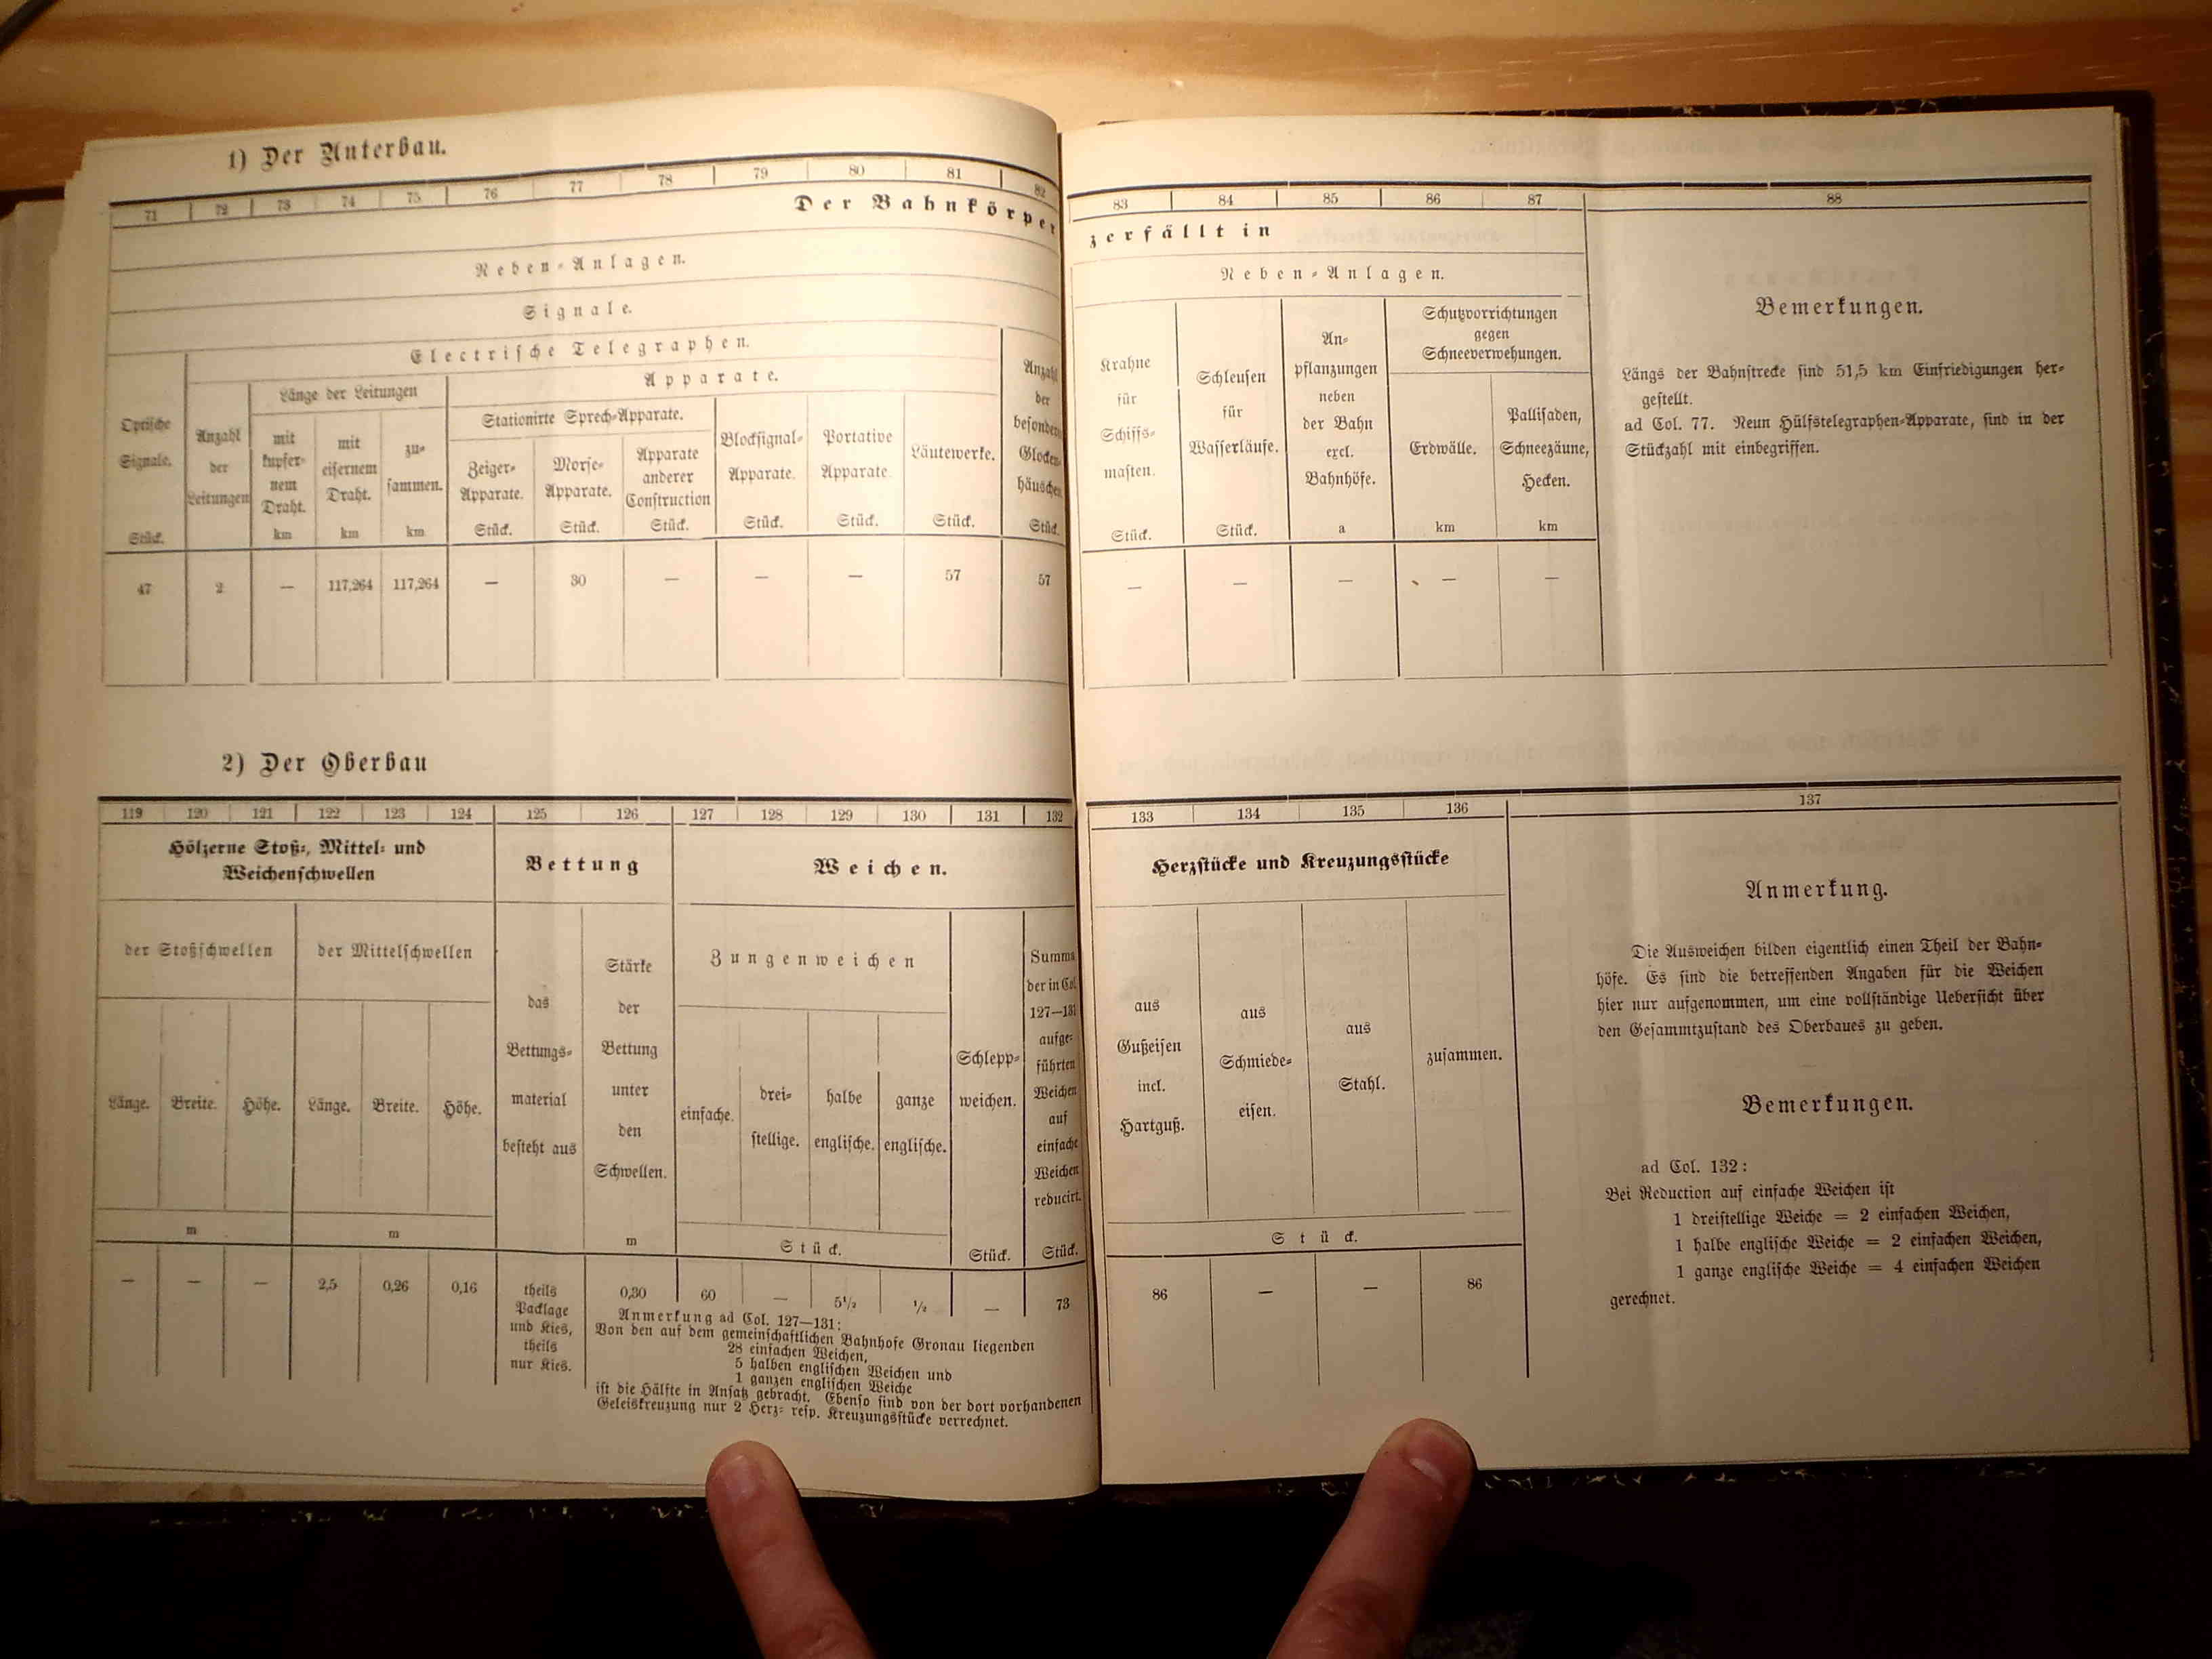 1) Der Unterbau.
71 72 73 74 75 76 77 78 79 80 81 82
Der Bahnkörper
Neben-Anlagen.
Signale.
Electrische Telegraphen.
Optische
Signale.
Stück.
Anzahl
der
Leitungen
Länge der Leitungen
mit
kupfer-
nem
Draht.
km
mit
eisernem
Draht.
km
zu-
sammen.
km
Apparate.
Stationirte Sprech-Apparate.
Zeiger-
Apparate.
Stück.
Morse-
Apparate.
Stück.
Apparate
anderer
Construction
Stück.
Blocksignal-
Apparate.
Stück.
Portative
Apparate.
Stück.
Läutewerke.
Stück.
Anzahl
der
besonderen
Glocken-
häuschen
Stück.
47 2 — 117,264 117,264 — 30 — — — 57 57
83 84 85 86 87 88
zerfällt in
Neben-Anlagen.
Krahne
für
Schiffs-
masten.
Stück.
Schleusen
für
Wasserläufe.
Stück.
An-
pflanzungen
neben
der Bahn
excl.
Bahnhöfe.
a
Schutzvorrichtungen
gegen
Schneeverwehungen.
Erdwälle.
km
Pallisaden,
Schneezäune,
Hecken.
km
— — — — —
Bemerkungen.
Längs der Bahnstrecke sind 51,5 km Einfriedigungen her-
gestellt.
ad Col. 77. Neun Hülfstelegraphen-Apparate, sind in der
Stückzahl mit einbegriffen.
2) Der Oberbau
119 120 121 122 123 124 125 126 127 128 129 130 131 132
Hölzerne Stoß-, Mittel- und
Weichenschwellen
der Stoßschwellen
der Mittelschwellen
Länge. Breite. Höhe. Länge. Breite. Höhe.
m m
Bettung
das
Bettungs-
material
besteht aus
Stärke
der
Bettung
unter
den
Schwellen.
m
Weichen.
Zungenweichen
einfache.
drei-
stellige.
halbe
englische.
ganze
englische.
Stück.
Schlepp-
weichen.
Stück.
Summa
der in Col.
127—131
aufge-
führten
Weichen
auf
einfache
Weichen
reducirt.
Stück.
— — — 2,5 0,26 0,16
theils
Packlage
und Kies,
theils
nur Kies.
0,30 60 — 5½ ½ — 73
Anmerkung ad Col. 127—131:
Von den auf dem gemeinschaftlichen Bahnhofe Gronau liegenden
28 einfachen Weichen,
5 halben englischen Weichen und
1 ganzen englischen Weiche
ist die Hälfte in Ansatz gebracht. Ebenso sind von der dort vorhandenen
Geleiskreuzung nur 2 Herz- resp. Kreuzungsstücke verrechnet.
133 134 135 136 137
Herzstücke und Kreuzungsstücke
aus
Gußeisen
incl.
Hartguß.
aus
Schmiede-
eisen.
aus
Stahl.
zusammen.
Stück.
86 — — 86
Anmerkung.
Die Ausweichen bilden eigentlich einen Theil der Bahn-
höfe. Es sind die betreffenden Angaben für die Weichen
hier nur aufgenommen, um eine vollständige Uebersicht über
den Gesammtzustand des Oberbaues zu geben.
Bemerkungen.
ad Col. 132:
Bei Reduction auf einfache Weichen ist
1 dreistellige Weiche = 2 einfachen Weichen,
1 halbe englische Weiche = 2 einfachen Weichen,
1 ganze englische Weiche = 4 einfachen Weichen
gerechnet.